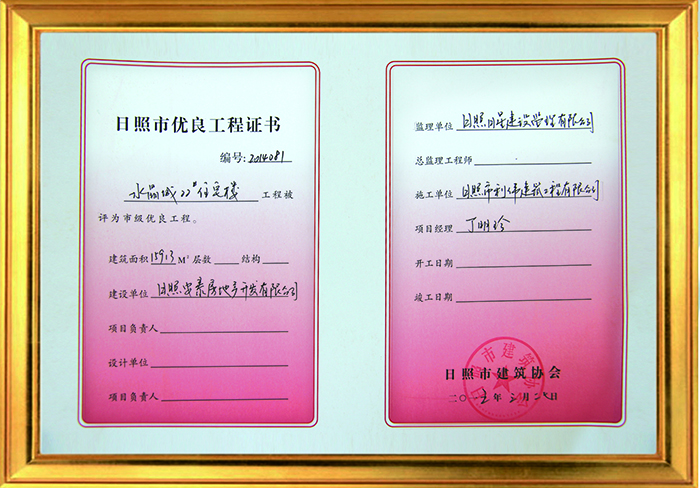 日照市优良工程证书
编号:2014081
水晶城22#住宅楼 工程被
评为市级优良工程。
建筑面积 15913 M² 层数 结构
建设单位 日照安泰房地产开发有限公司
项目负责人
设计单位
项目负责人
监理单位 日照 建设 有限公司
总监理工程师
施工单位 日照市利伟建筑工程有限公司
项目经理 丁明珍
开工日期
竣工日期
日照市建筑协会
二〇一五年 三月 日
日照市建筑协会